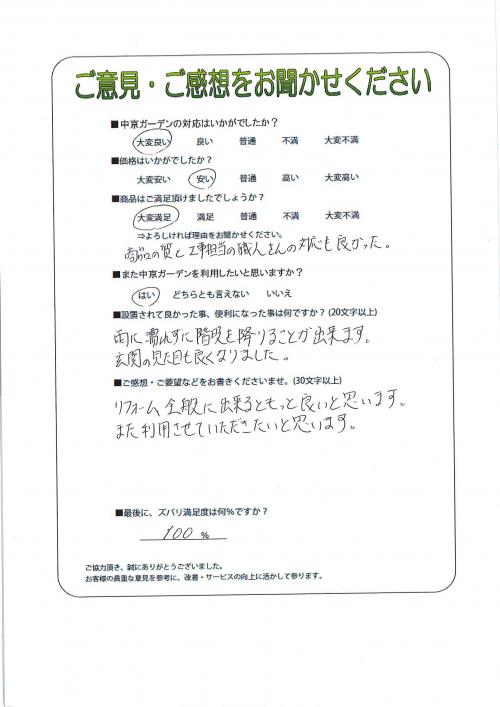 ご意見・ご感想をお聞かせください
■中京ガーデンの対応はいかがでしたか？
大変良い 良い 普通 不満 大変不満
■価格はいかがでしたか？
大変安い 安い 普通 高い 大変高い
■商品はご満足頂けましたでしょうか？
大変満足 満足 普通 不満 大変不満
⇒よろしければ理由をお聞かせください。
商品の質と工事担当の職人さんの対応も良かった。
■また中京ガーデンを利用したいと思いますか？
はい どちらとも言えない いいえ
■設置されて良かった事、便利になった事は何ですか？(20文字以上)
雨に濡れずに階段を降りることが出来ます。
玄関の見た目も良くなりました。
■ご感想・ご要望などをお書きくださいませ。(30文字以上)
リフォーム全般に出来るともっと良いと思います。
また利用させていただきたいと思います。
■最後に、ズバリ満足度は何％ですか？
100 ％
ご協力頂き、誠にありがとうございました。
お客様の貴重な意見を参考に、改善・サービスの向上に活かして参ります。